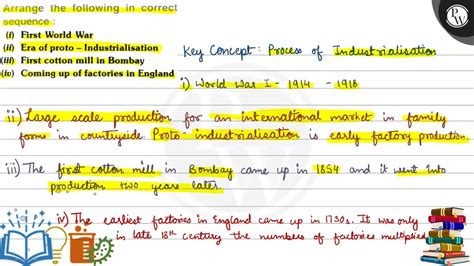 Arrange the following in correct
sequence :
(i) First World War
(ii) Era of proto – Industrialisation
(iii) First cotton mill in Bombay
(iv) Coming up of factories in England
PW
Key Concept: Process of Industrialisation
i) World War I - 1914 - 1918
ii) Large scale production for an international market in family
forms in countryside Proto-industrialisation is early factory production.
iii) The first cotton mill in Bombay came up in 1854 and it went into
production two years later.
iv) The earliest factories in England came up in 1730s. It was only
in late 18th century the numbers of factories multiplied